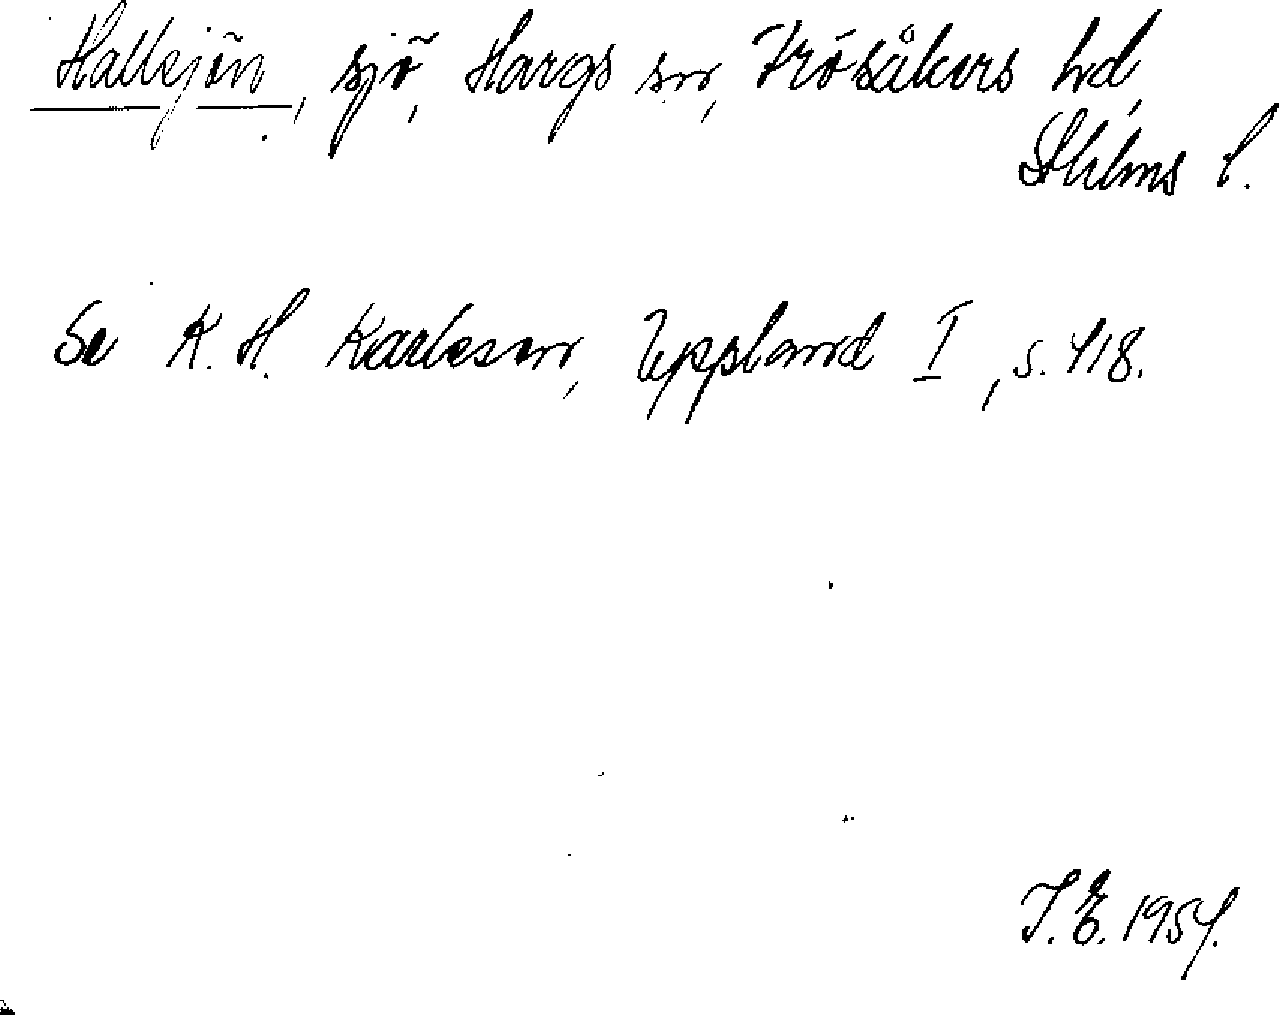 Hallsjön, sjö, Hargs sn, Frösåkers hd,
Sthlms l.
Se K. H. Karlsson, Uppland I, s. 418.
I. E. 1954.